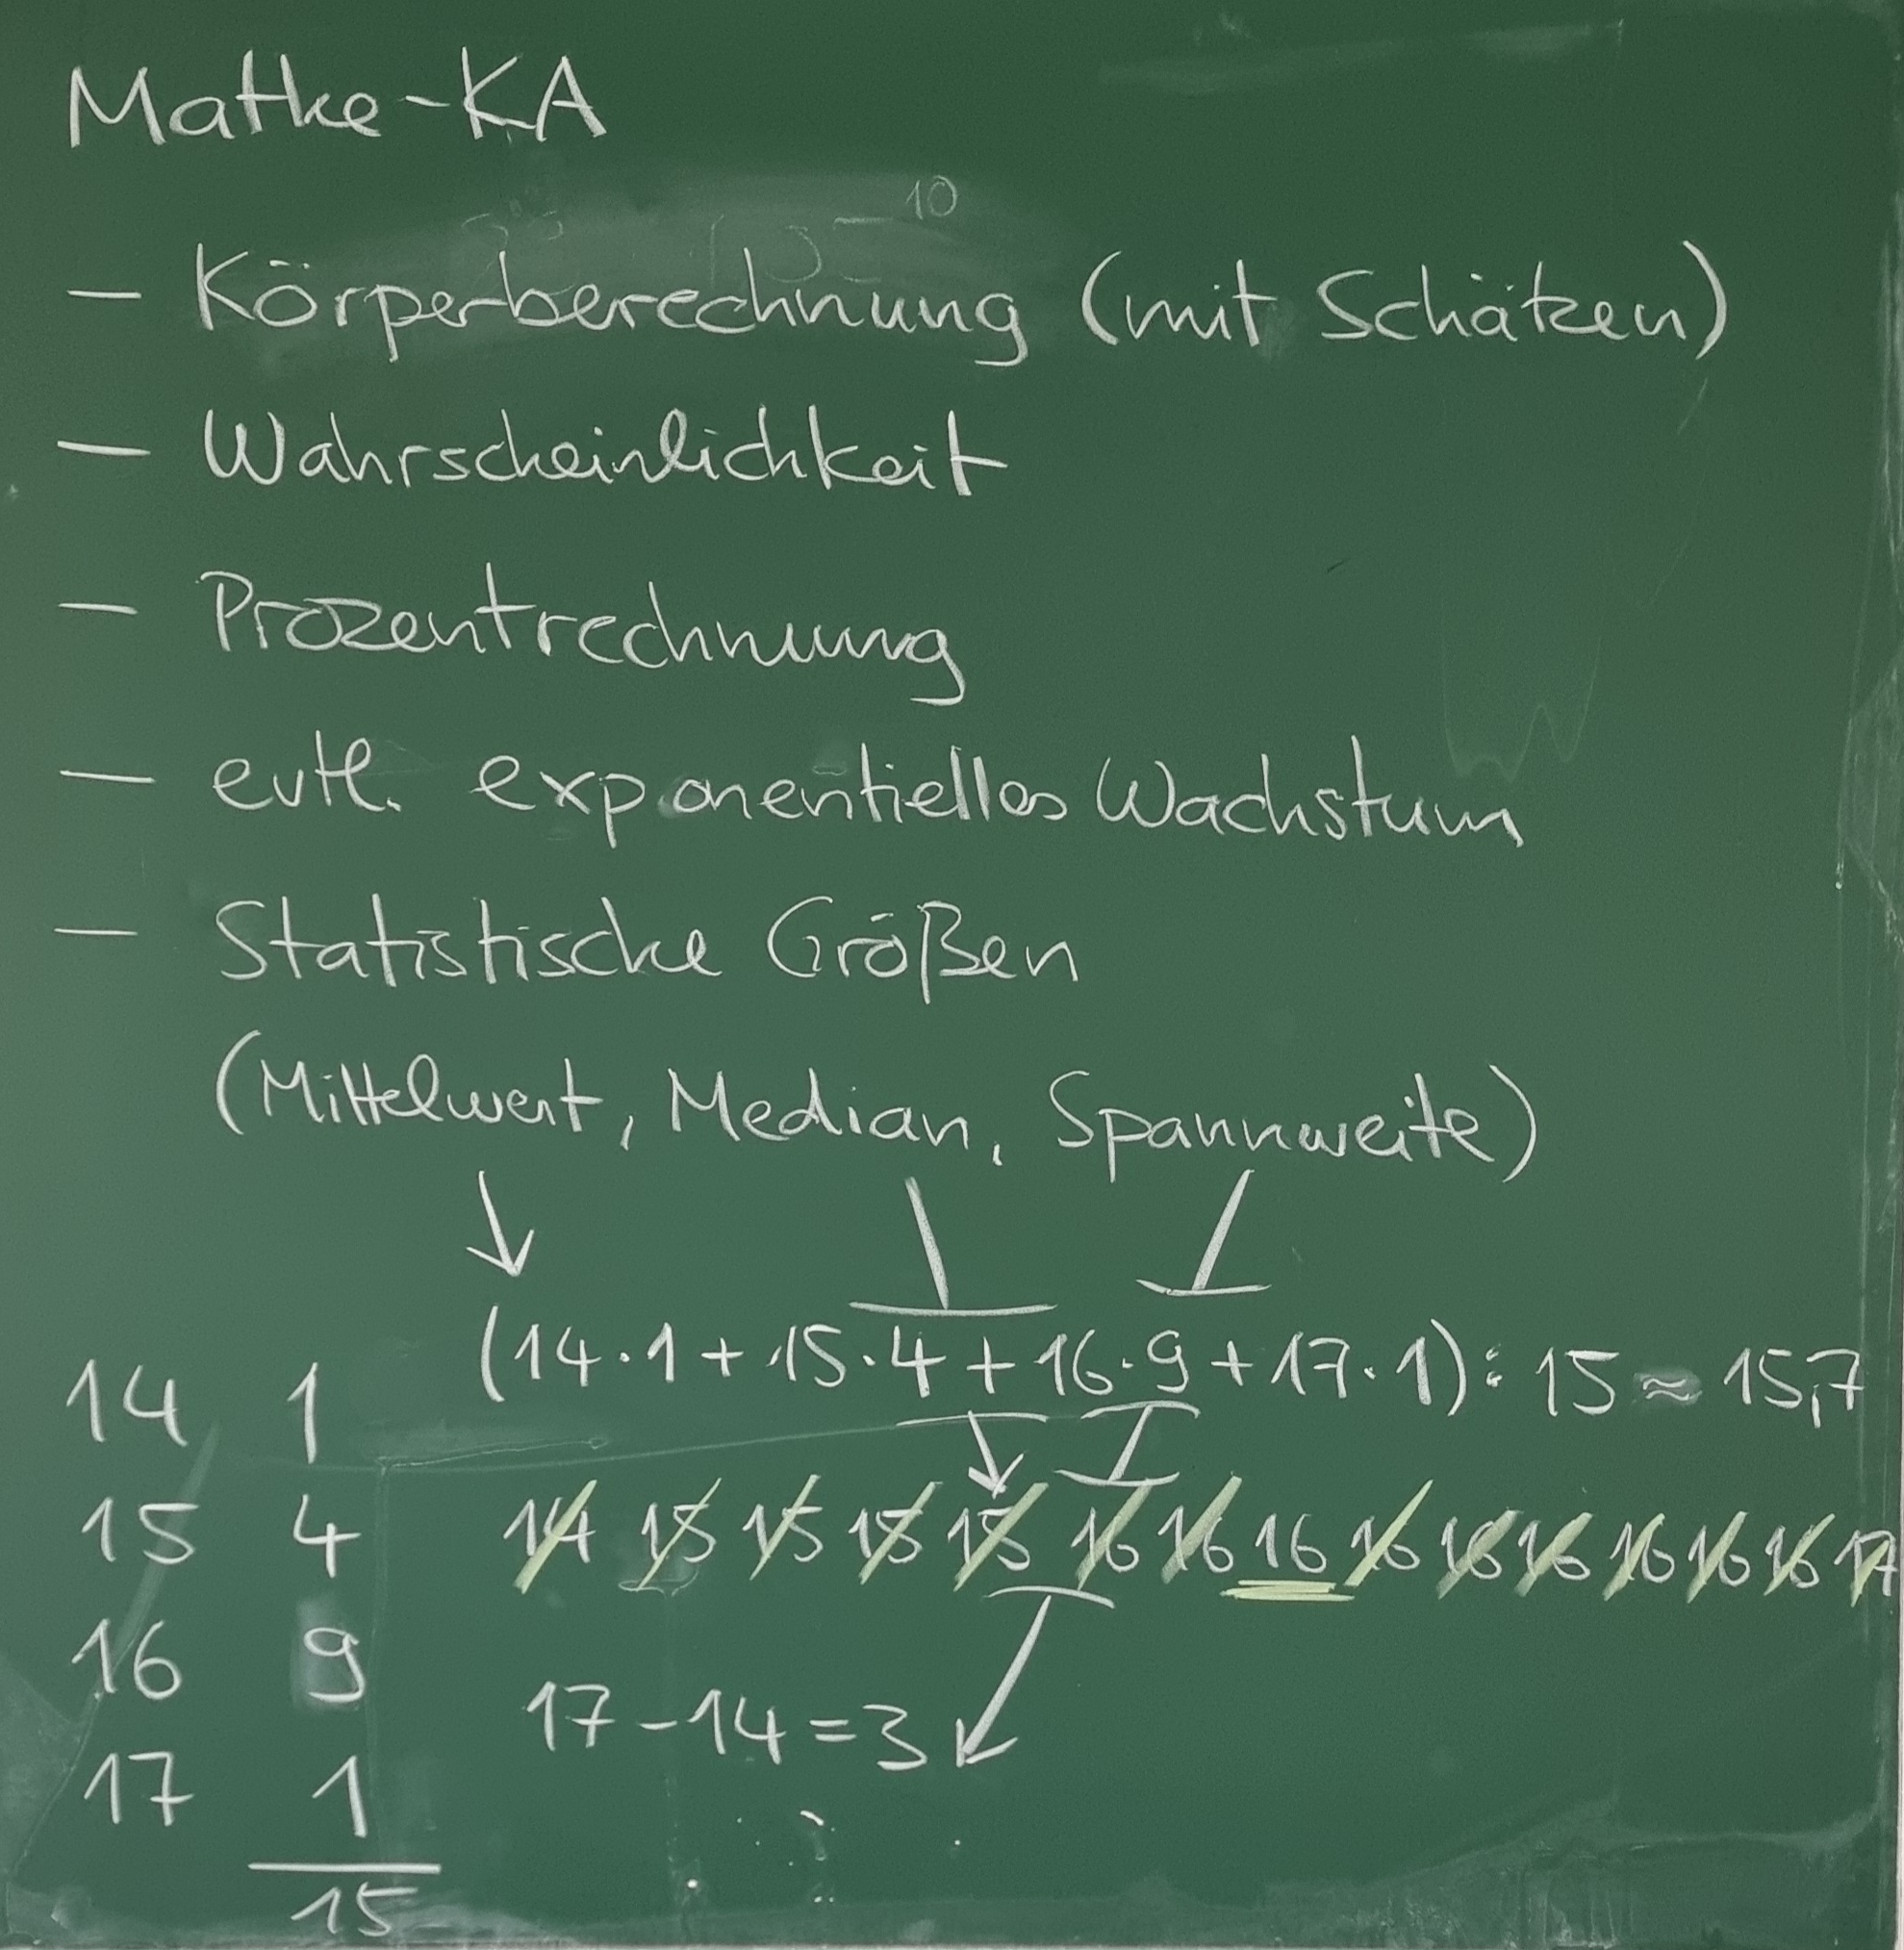 Mathe-KA
10
- Körperberechnung (mit Schätzen)
- Wahrscheinlichkeit
- Prozentrechnung
- evtl. exponentielles Wachstum
- Statistische Größen
(Mittelwert, Median, Spannweite)
(14·1 + 15·4 + 16·9 + 17·1) : 15 ≈ 15,7
14 1
15 4
14 15 15 15 15 16 16 16 16 16 16 16 16 16 17
16 9
17 - 14 = 3
17 1
15